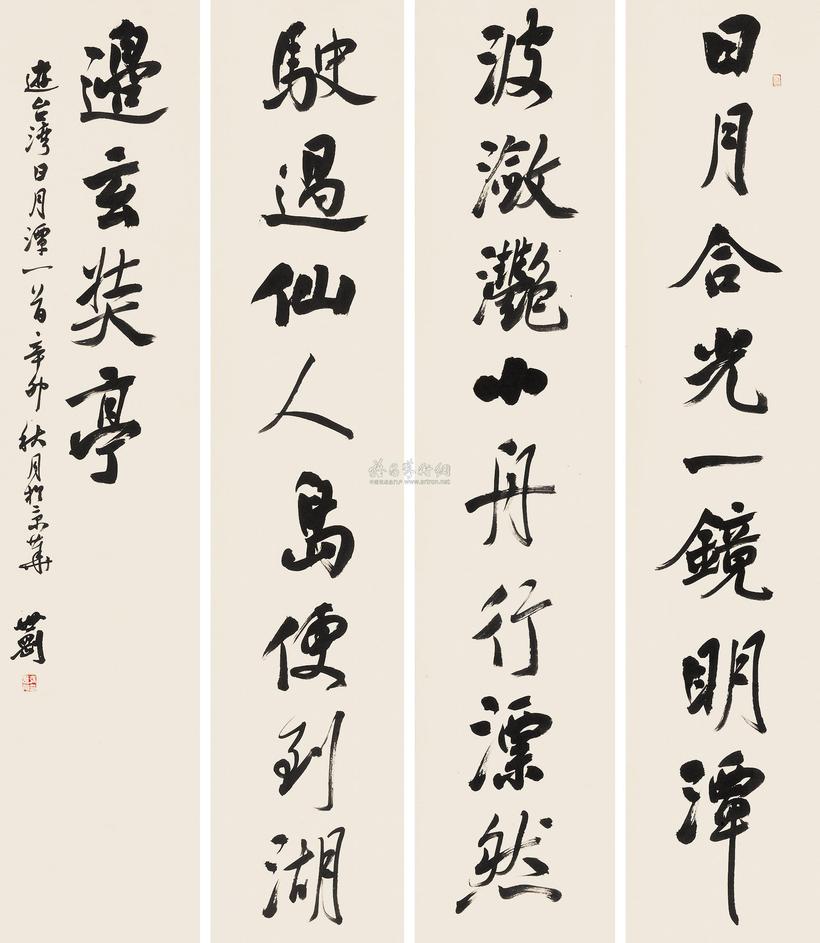 日月合光一鏡明潭
波瀲灩小舟行漂然
駛過仙人島便到湖
邊玄奘亭
遊台湾日月潭一首辛卯秋月於京華
www.artron.net